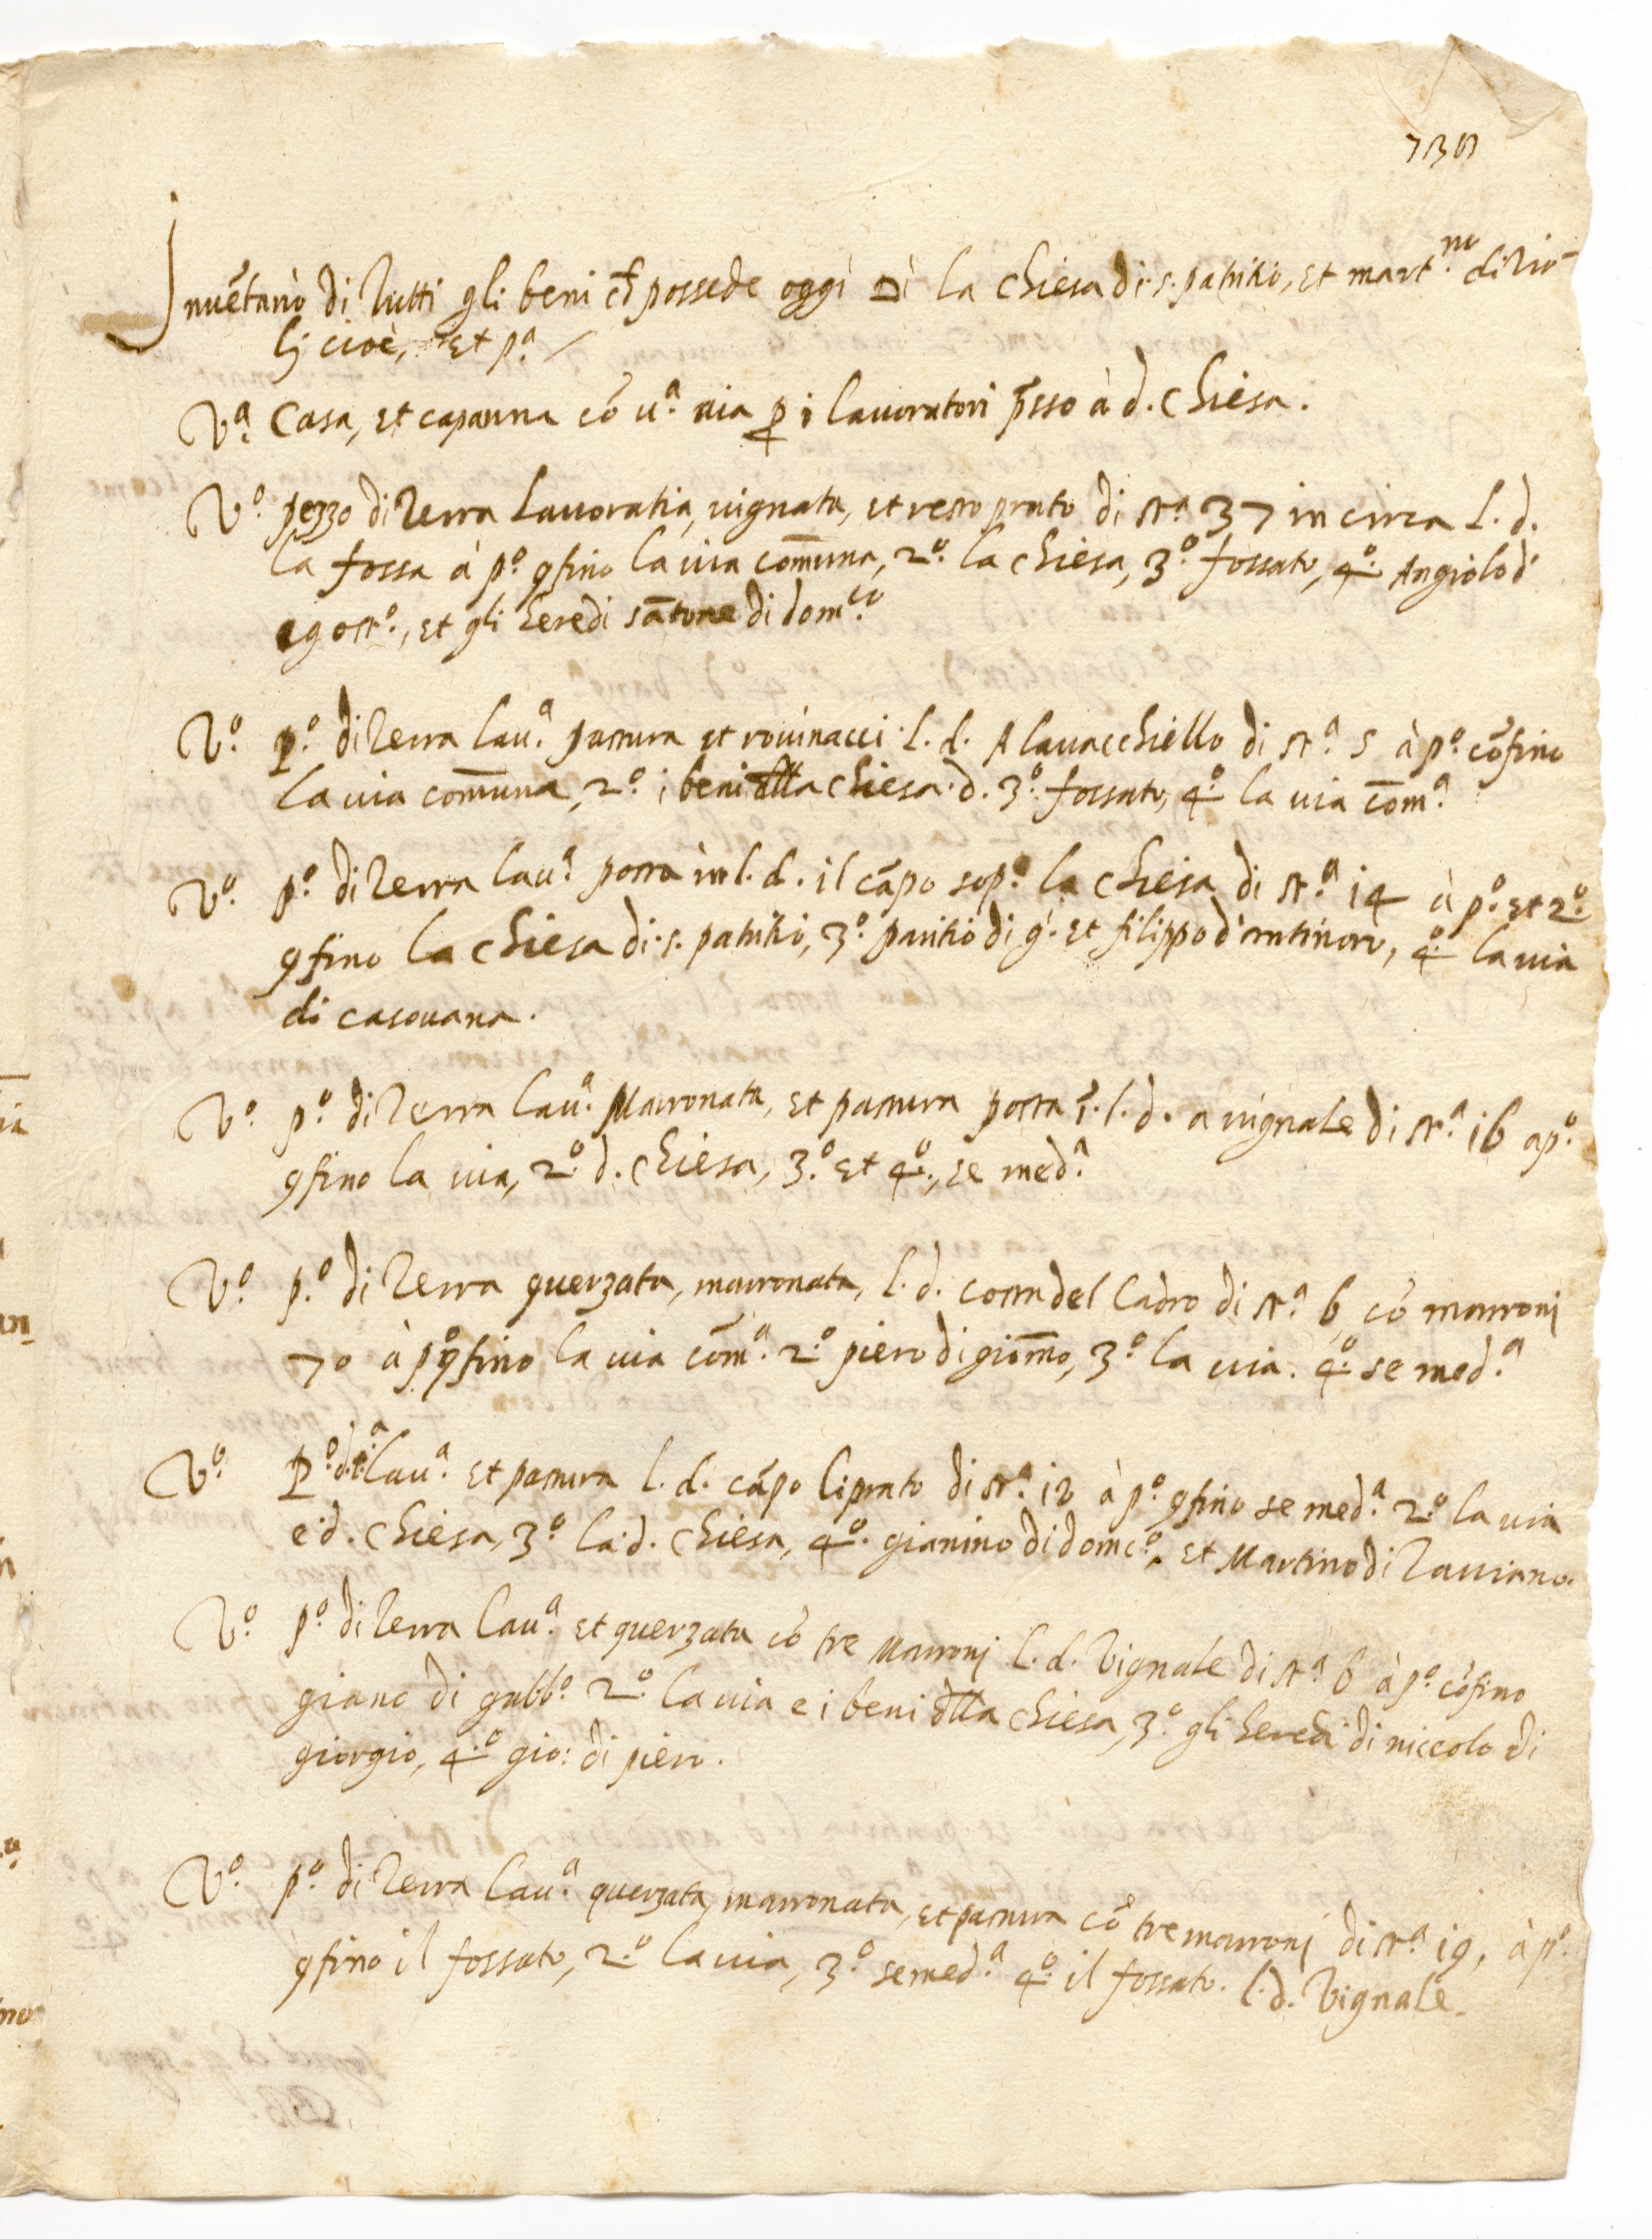 730
Inuētario di tutti gli beni ch̄ possede oggi dì la chiesa di s. patritio, et mart.no di tio-
lj cioè, et p.a
V.a casa, et capanna cō u.a aia p̱ i lauoratori p̄sso à d. chiesa.
V.o pezzo di terra lauoratia, uignata, et resto prato di st.a 37 in circa l. d.
la fossa à p.o ꝯfino la uia com̄una, 2.o la chiesa, 3.o fossato, 4.o Angiolo d'
agost.o, et gli heredi sātone di dom.co
V.o p.o di terra lau.a pastura et rouinacci l. d. Alauacchiello di st.a 5 à p.o cōfino
la uia com̄una, 2.o i beni d̄lla chiesa d. 3.o fossato, 4.o la uia com̄.a
V.o p.o di terra lau.a posta in l. d. il cāpo sop.a la chiesa di st.a 14 à p.o et 2.o
ꝯfino la chiesa di s. patritio, 3.o pasitio di g. et filippo d'antinoro, 4.o la uia
di casouana.
V.o p.o di terra lau.a Marronata, et pastura posta ī l. d. a uignale di st.a 16 a p.o
ꝯfino la uia, 2.o d. chiesa, 3.o et 4.o, se med.a
V.o p.o di terra querzata, marronata, l. d. costa del Cadro di st.a 6 cō marronj
70 à p.o ꝯfino la uia com̄.a 2.o piero di giōmo, 3.o la uia. 4.o se med.a
V.o P.o d. t.a lau.a et pastura l. d. cāpo liprato di st.a 12 à p.o ꝯfino se med.a 2.o la uia
e d. chiesa, 3.o la d. chiesa, 4.o gianino di domc.o, et Martino di tauiano.
V.o p.o di terra lau.a et querzata cō tre Marronj l. d. Vignale di st.a 6 à p.o cōfino
giano di gabb.o 2.o la uia e i beni d̄lla chiesa, 3.o gli heredi di niccolo di
giorgio, 4.o gio: di piero.
V.o p.o di terra lau.a querzata, marronata, et pastura cō tre marronj di st.a 19, à p.o
ꝯfino il fossato, 2.o la uia, 3.o se med.a 4.o il fossato. l. d. Vignale.